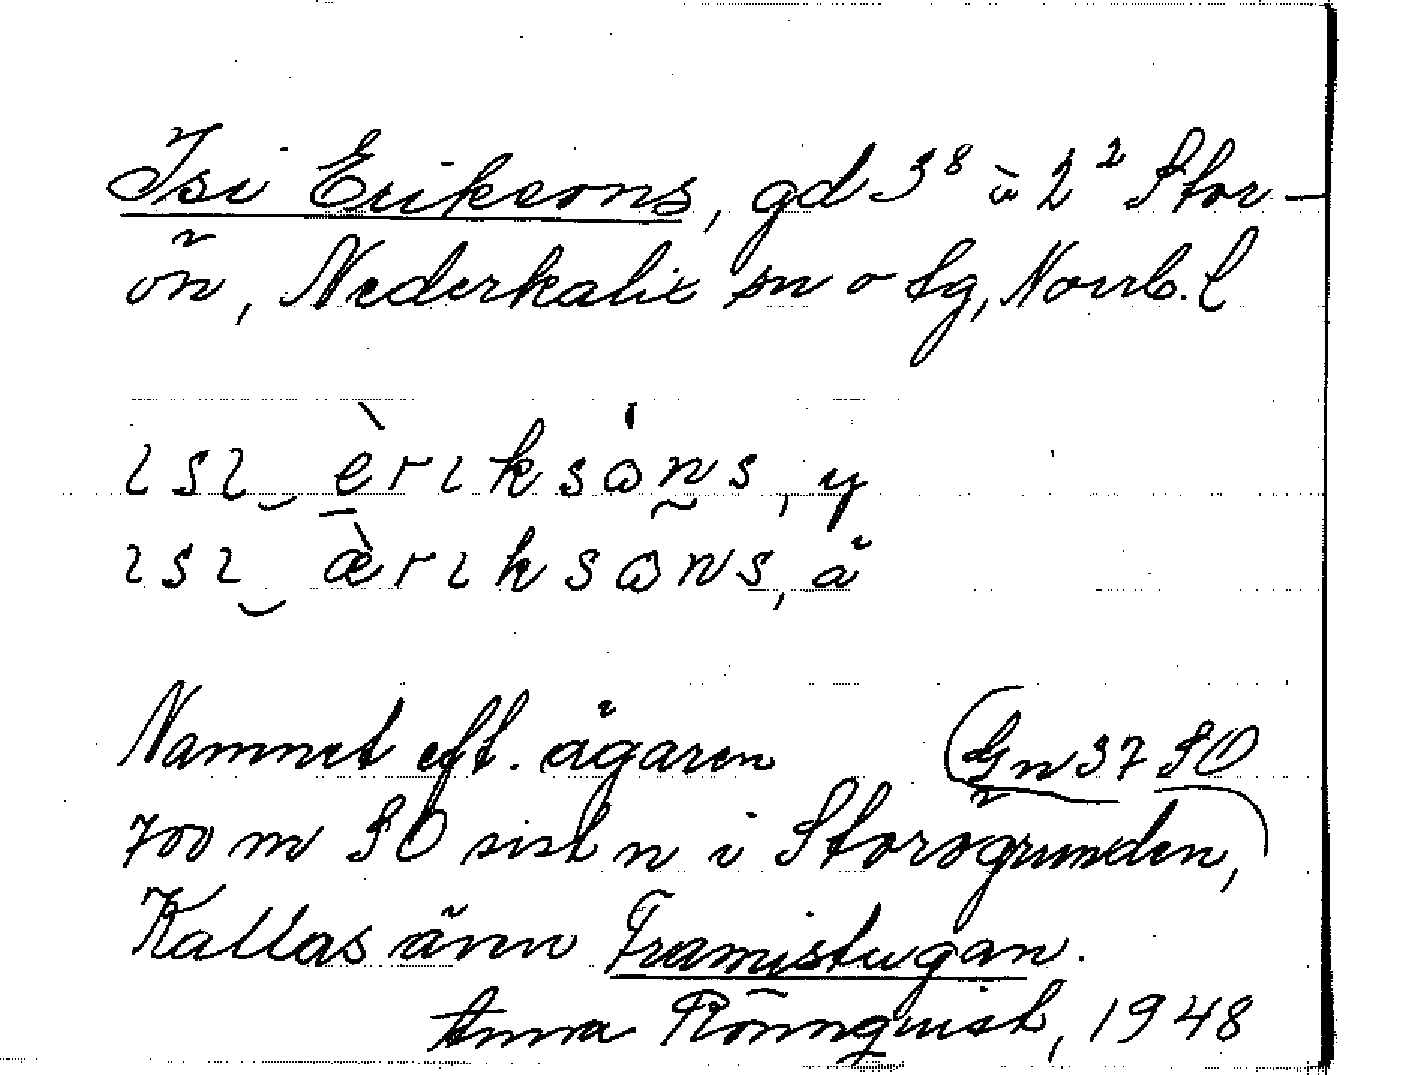 Isi Eriksons, gd 3⁸ ä 2² Stor-
ön, Nederkalix sn o tg, Norrb. l
ɩsɩ‿èrɩksɷ̀ns, y
ɩsɩ‿æ̀rɩksɷns, ä
Namnet eft. ägaren (Gn 37 SO
700 m SO sist n i Storögrunden,)
Kallas även Framistugan.
Anna Rönnquist, 1948